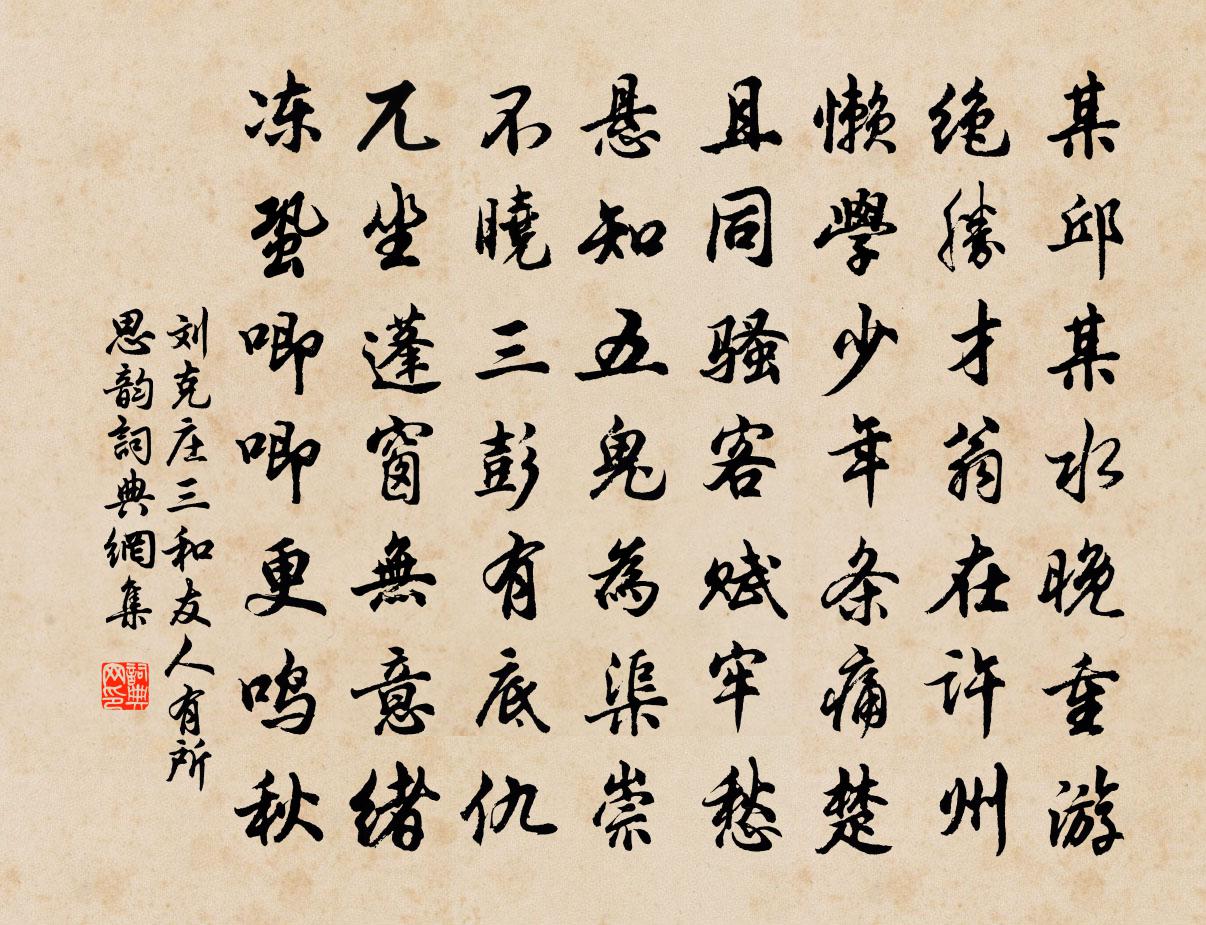 某邱某水晚重游
绝胜才翁在许州
懒學少年条痛楚
且同骚客赋牢愁
悬知五鬼為渠崇
不曉三彭有底仇
兀坐蓬窗無意绪
冻蛩唧唧更鸣秋
刘克庄三和友人有所
思韵詞典網集
詞典网印